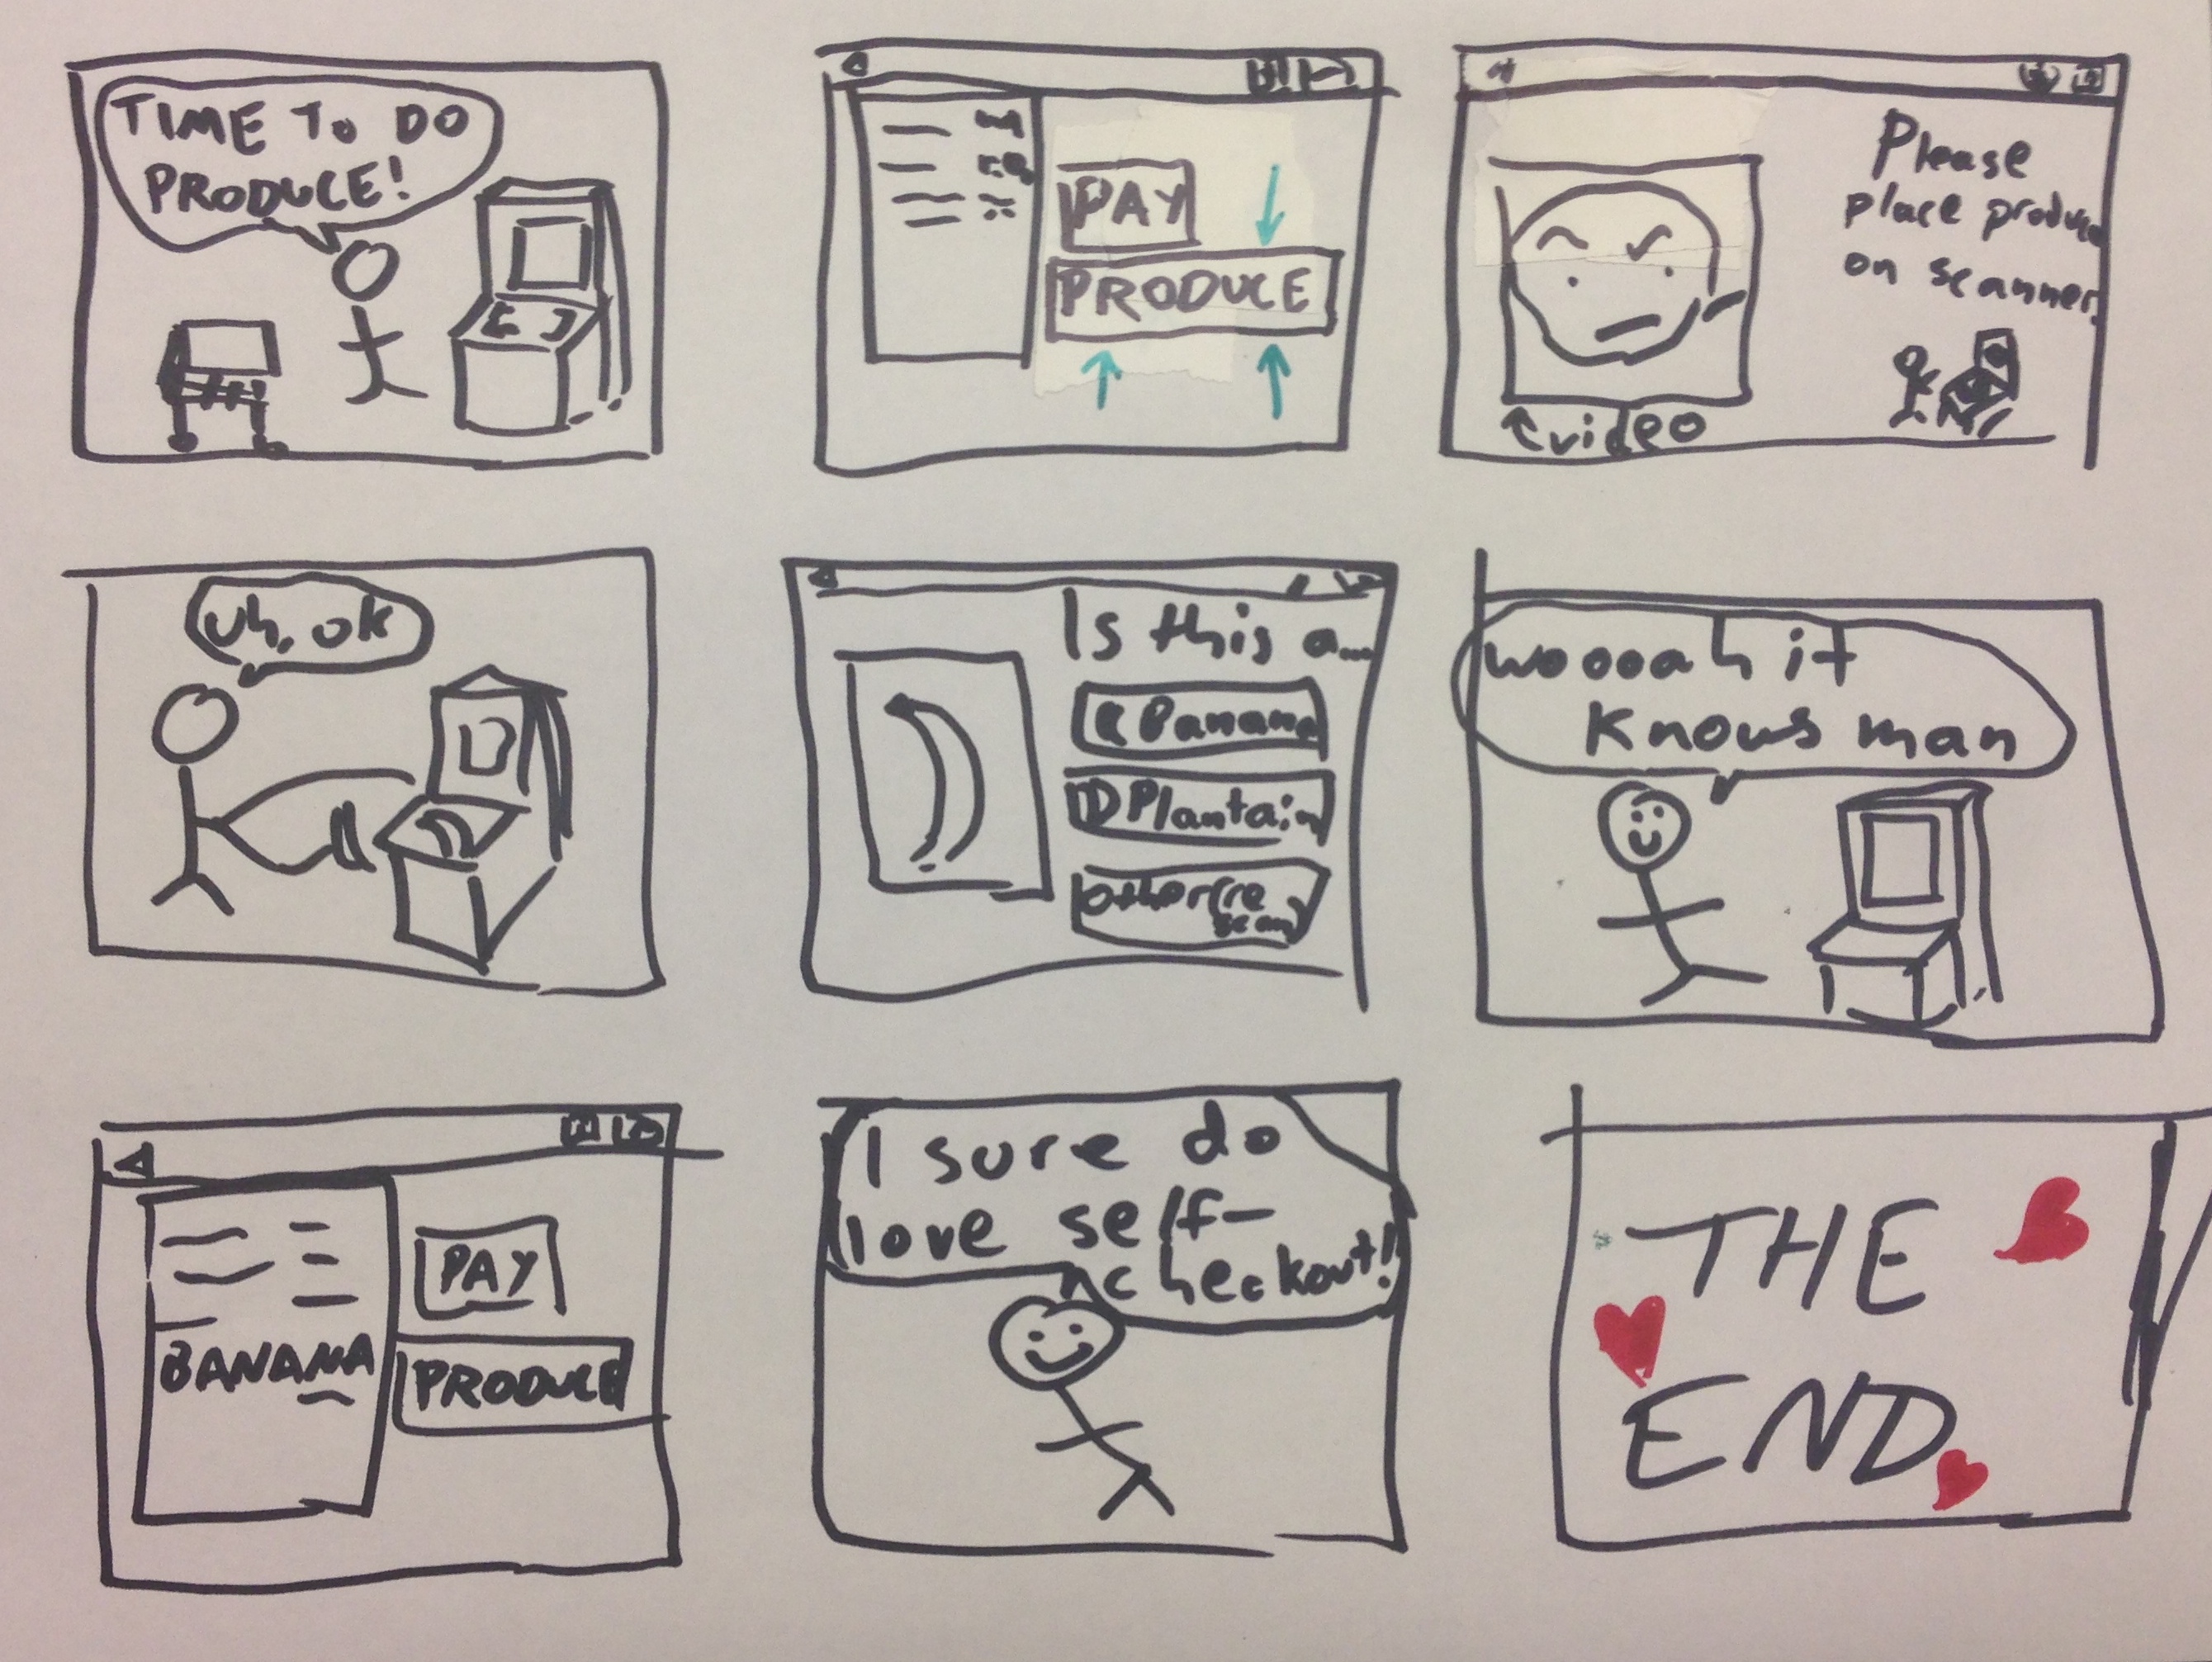 TIME TO DO
PRODUCE!
PAY
PRODUCE
Please
place produce
on scanner.
video
uh, ok
Is this a...
Banana
Plantain
other(re
scan)
woooah it
knows man
BANANA
PAY
PRODUCE
I sure do
love self-
checkout!
THE
END